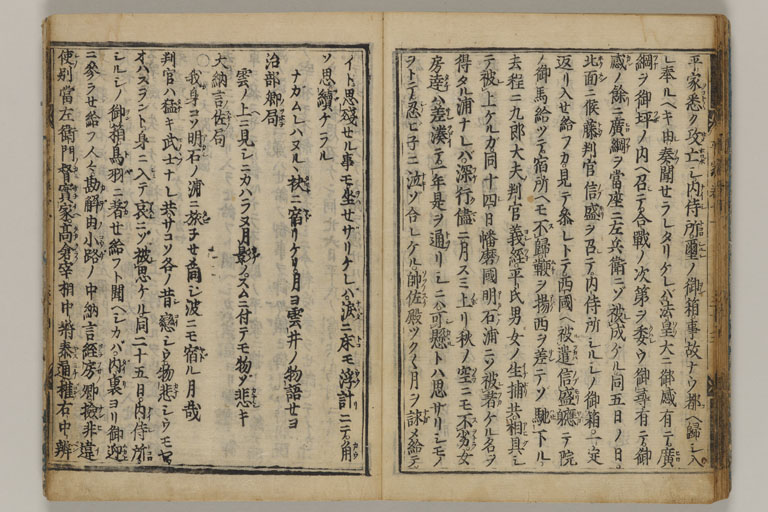 平家悉ク攻亡シ内侍所璽ノ御箱事故ナウ都ヘ歸シ入
レ奉ルヘキ由奏聞セラレタリケレハ法皇大ニ御感有テ廣
綱ヲ御坪ノ内ヘ召テ合戰ノ次第ヲ委ウ御尋有テ御
感ノ餘ニ廣綱ヲ當座ニ左兵衛ニソ被成ケル同五日ノ日
北面ニ候藤判官信盛ヲ召テ内侍所シルシノ御箱一定
返リ入セ給フカ見テ參レトテ西國ヘ被遣信盛軈テ院
ノ御馬給ツテ宿所ヘモ不歸鞭ヲ揚西ヲ差テソ馳下ル
去程ニ九郎大夫判官義經平氏男女ノ生捕共相具シ
テ被上ケルカ同十四日幡磨國明石浦ニソ被著ケル名ヲ
得タル浦ナレハ深行儘ニ月スミ上リ秋ノ空ニモ不劣女
房達ハ差湊テ一年是ヲ通リシニハ可懸トハ思サリシモノ
ヲトテ忍ヒ子ニ泣ソ合レケル帥佐殿ツクヽヽ月ヲ詠メ給テ
イト思殘セル事モ坐セサリケレハ涙ニ床モ浮計ニテ角
ソ思續ケラル
ナカムレハヌルヽ袂ニ宿リケリ月ヨ雲井ノ物語セヨ
治部卿局
雲ノ上ニ見シニカハラヌ月影ノスムニ付テモ物ソ悲キ
大納言佐局
我身コソ明石ノ浦ニ旅子セメ同シ波ニモ宿ル月哉
判官ハ猛キ武士ナレ共サコソ各ノ昔戀シウ物悲シウモ
オハスラント身ニ入テ哀ニソ被思ケル同二十五日内侍所
シルシノ御箱鳥羽ニ著セ給フト聞ヘシカハ内裏ヨリ御迎
ニ參ラセ給フ人々勘解由小路ノ中納言經房卿撿非違
使別當左衛門督實家高倉宰相中將泰通權右中辨